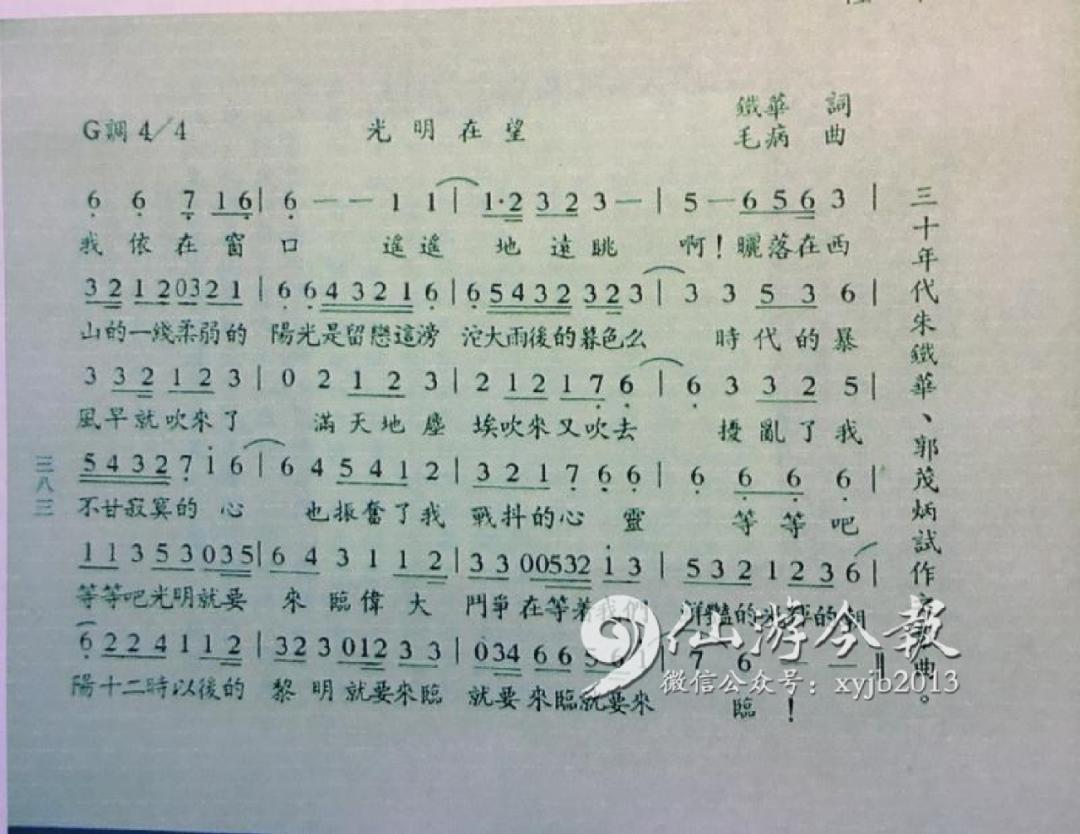 光明在望
G調 4/4
鐵華 詞
毛病 曲
6 6 7 1 6 | 6 — — 1 1 | 1·2 3 2 3 — | 5 — 6 5 6 3 |
我依在窗口 遙遙地遠眺 啊！曬落在西
3 2 1 2 0 3 2 1 | 6 6 4 3 2 1 6 | 6 5 4 3 2 3 2 3 | 3 3 5 3 6 |
山的一綫柔弱的 陽光是留戀這滂 沱大雨後的暮色么 時代的暴
3 3 2 1 2 3 | 0 2 1 2 3 | 2 1 2 1 7 6 | 6 3 3 2 5 |
風早就吹來了 滿天地塵 埃吹來又吹去 擾亂了我
5 4 3 2 7 1 6 | 6 4 5 4 1 2 | 3 2 1 7 6 6 | 6 6 6 6 |
不甘寂寞的心 也振奮了我 戰抖的心靈 等等吧
1 1 3 5 3 0 3 5 | 6 4 3 1 1 2 | 3 3 0 0 5 3 2 1 3 | 5 3 2 1 2 3 6 |
等等吧光明就要 來臨偉大 鬥爭在等着我們 鮮豔的光輝的朝
6 2 2 4 1 1 2 | 3 2 3 0 1 2 3 3 | 0 3 4 6 6 5 6 1 | 7 6 — — ‖
陽十二時以後的 黎明就要來臨 就要來臨就要來 臨！
三十年代朱鐵華、郭茂炳試作之歌曲。
三八三
仙游今報
微信公众号：xyjb2013